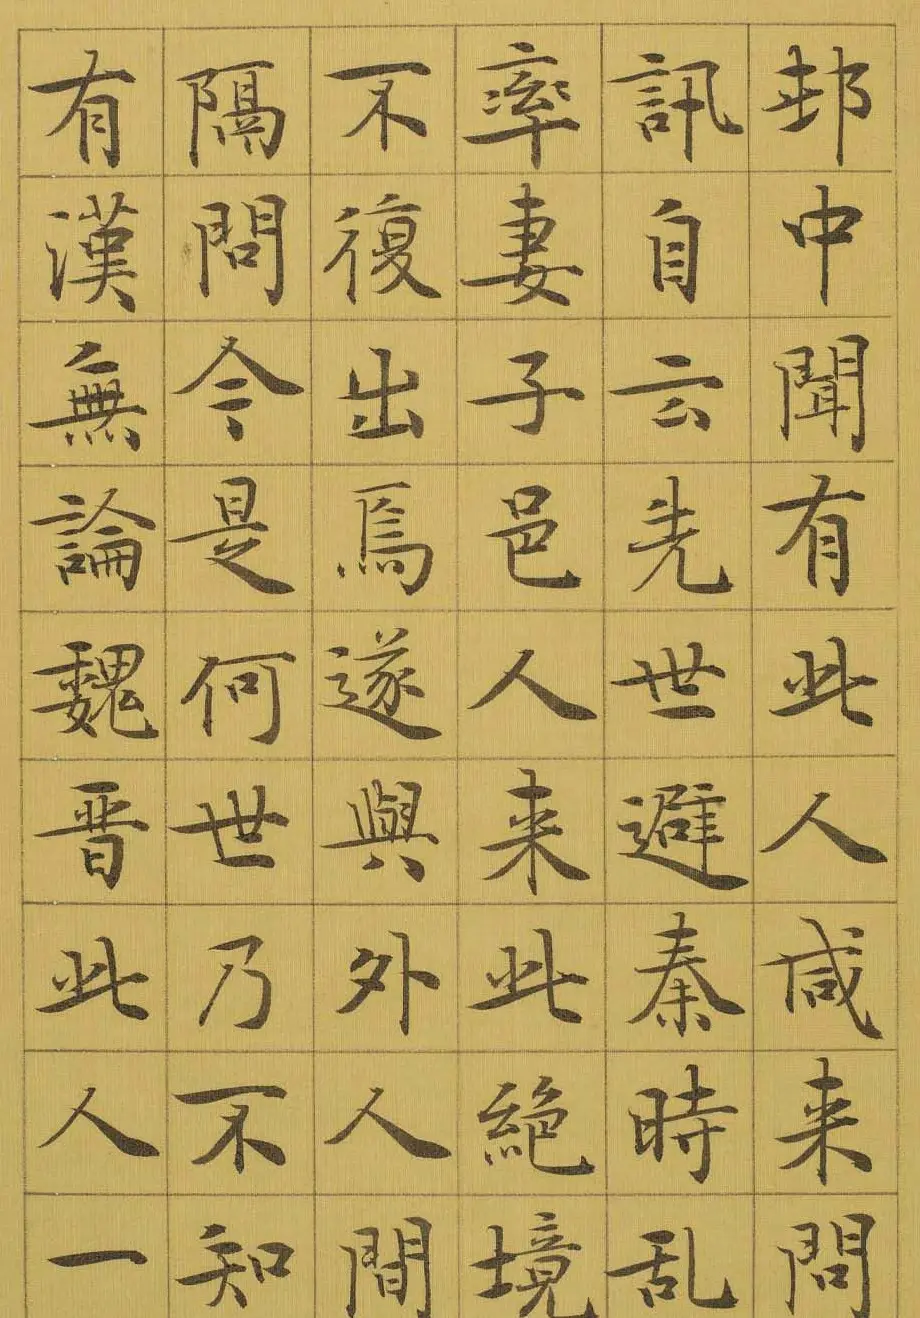 邨中聞有此人咸来問
訊自云先世避秦時乱
率妻子邑人来此絶境
不復出焉遂與外人間
隔問今是何世乃不知
有漢無論魏晋此人一